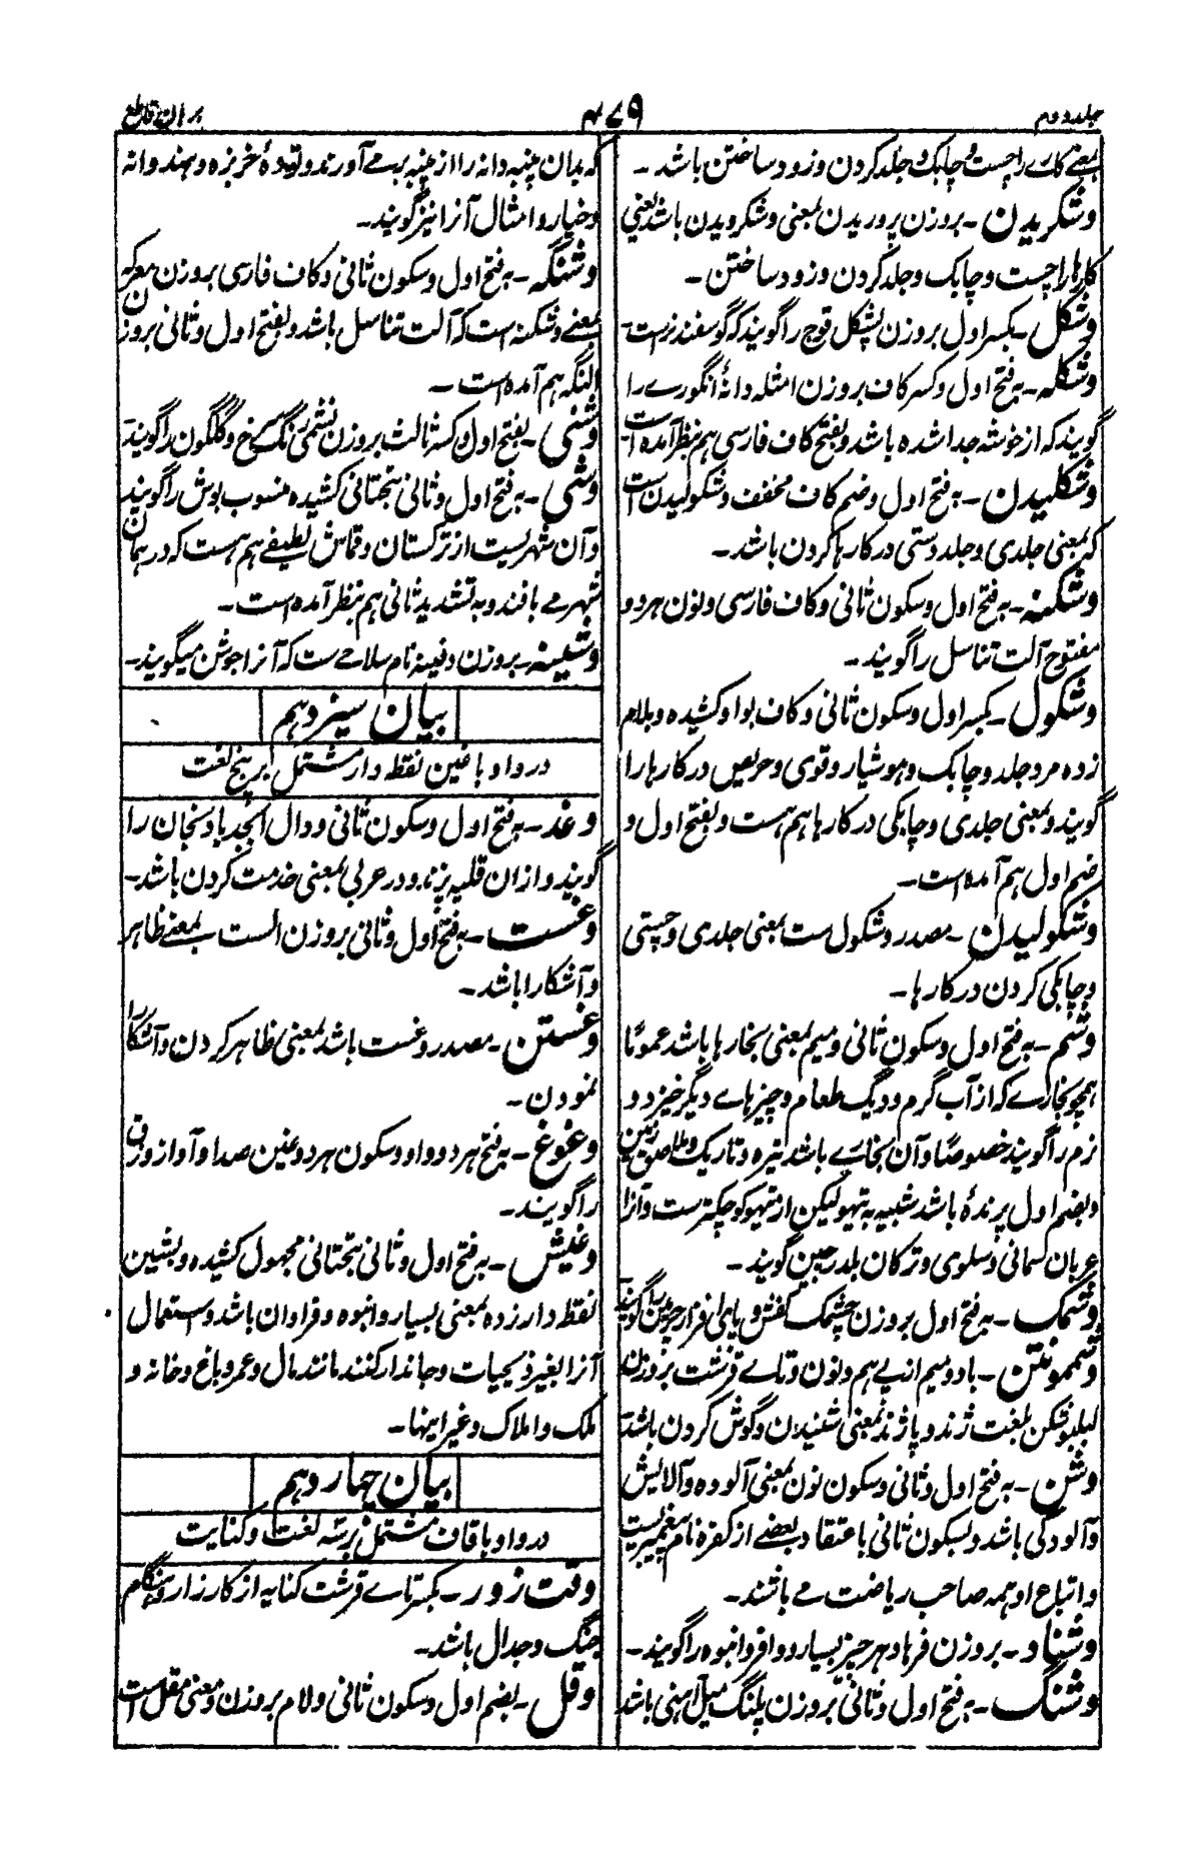 جلد دوم
۴۷۹
برہان قاطع
بمعنے کارے را چست و چابک و جلد کردن و زود ساختن باشد۔
وشکریدن۔ بروزن پروریدن بمعنی وشکرویدن باشد یعنی
کارہا را چست و چابک و جلد کردن و زود ساختن۔
وشکل۔ بکسر اول بروزن پشکل قوچ را گویند کہ گوسفند نر است۔
وشکلہ۔ بہ فتح اول و کسر کاف بروزن امثلہ دانۂ انگورے را
گویند کہ از خوشہ جدا شدہ باشد و بفتح کاف فارسی ہم بنظر آمدہ است
وشکلیدن۔ بہ فتح اول و ضم کاف مخفف وشکولیدن است
کہ بمعنی جلدی و جلد دستی در کارہا کردن باشد۔
وشکنہ۔ بہ فتح اول و سکون ثانی و کاف فارسی و نون ہر دو
مفتوح آلت تناسل را گویند۔
وشکول۔ بکسر اول و سکون ثانی و کاف بواو کشیدہ و بلام
زدہ مرد جلد و چابک و ہوشیار و قوی و حریص در کارہا را
گویند و بمعنی جلدی و چابکی در کارہا ہم ہست و بفتح اول و
ضم اول ہم آمدہ است۔
وشکولیدن۔ مصدر وشکول ست بمعنی جلدی و چستی
و چابکی کردن در کارہا۔
وشم۔ بہ فتح اول و سکون ثانی و میم بمعنی بخارہا باشد عموماً
ہمچو بخارے کہ از آب گرم و دیگ طعام و چیزہاے دیگر خیزد و
نزم را گویند خصوصاً و آن بخارے باشد تیرہ و تاریک و ملاصق زمین
و بضم اول پرندۂ باشد شبیہ بہ تیہو لیکن از تیہو کوچکتر ست و آنرا
عربان سمانی و سلوی و ترکان بلدرچین گویند۔
وشمک۔ بہ فتح اول بروزن چشمک کفش و پای افزار چرمین را گویند
وشمونتن۔ بادو میم از پے ہم و نون و تاے قرشت بروزن
لبلبو شکن بلغت ژند و پاژند بمعنی شنیدن و گوش کردن باشد
وشن۔ بہ فتح اول و ثانی و سکون نون بمعنی آلودہ و آلایش
و آلودگی باشد و بسکون ثانی باعتقاد بعضے از کفرہ نام پیغمبریست
و اتباع او ہمہ صاحب ریاضت مے باشند۔
وشناد۔ بروزن فرہاد ہر چیز بسیار و وافر و انبوہ را گویند۔
وشنگ۔ بہ فتح اول و ثانی بروزن پلنگ میل آہنی باشد
کہ بدان پنبہ دانہ را از پنبہ برمے آورند و تودۂ خربزہ و ہندوانہ
و خیار و امثال آنرا نیز گویند۔
وشنگہ۔ بہ فتح اول و سکون ثانی و کاف فارسی بروزن معرکہ
بمعنے وشکنہ است کہ آلت تناسل باشد و بفتح اول و ثانی بروزن
النگہ ہم آمدہ است۔
وشنی۔ بفتح اول و کسر ثالث بروزن پشمی رنگ سرخ و گلگون را گویند
وشی۔ بہ فتح اول و ثانی بتحتانی کشیدہ منسوب بوش را گویند
و آن شہریست از ترکستان و قماش لطیفے ہم ہست کہ در ہمان
شہر مے بافند و بہ تشدید ثانی ہم بنظر آمدہ است۔
وشینہ۔ بروزن دفینہ نام سلاحے ست کہ آنرا جوشن میگویند۔
بیان سیزدہم
در واو با غین نقطہ دار مشتمل بر پنج لغت
وغد۔ بہ فتح اول و سکون ثانی و دال ابجد بادنجان را
گویند و ازان قلیہ پزند و در عربی بمعنی خدمت کردن باشد۔
وغست۔ بہ فتح اول و ثانی بروزن الست بمعنے ظاہر
و آشکارا باشد۔
وغستن۔ مصدر وغست باشد بمعنی ظاہر کردن و آشکارا
نمودن۔
وغوغ۔ بہ فتح ہر دو واو و سکون ہر دو غین صدا و آواز وزق
را گویند۔
وغیش۔ بہ فتح اول و ثانی بتحتانی مجہول کشیدہ و بشین
نقطہ دار زدہ بمعنی بسیار و انبوہ و فراوان باشد و استعمال
آنرا بغیر ذیحیات و جاندار کنند مانند مال و عمر و باغ و خانہ و
ملک و املاک و غیر اینہا۔
بیان چہاردہم
در واو با قاف مشتمل بر سہ لغت و کنایت
وقت زور۔ بکسر تاے قرشت کنایہ از کارزار و ہنگام
جنگ و جدال باشد۔
وقل۔ بضم اول و سکون ثانی و لام بروزن و معنی مقل است